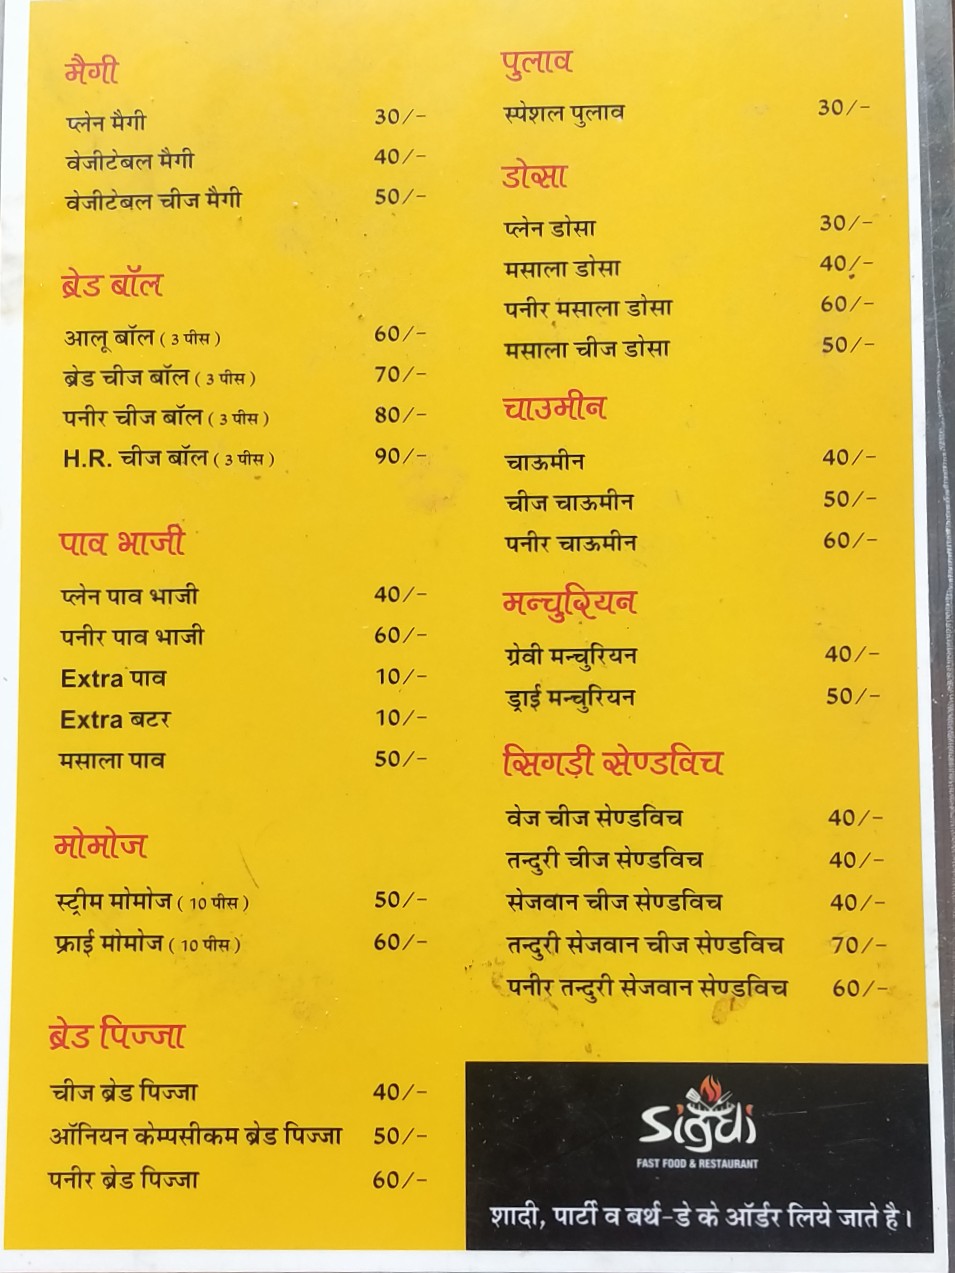 मैगी
प्लेन मैगी 30/-
वेजीटेबल मैगी 40/-
वेजीटेबल चीज मैगी 50/-
ब्रेड बॉल
आलू बॉल ( 3 पीस ) 60/-
ब्रेड चीज बॉल ( 3 पीस ) 70/-
पनीर चीज बॉल ( 3 पीस ) 80/-
H.R. चीज बॉल ( 3 पीस ) 90/-
पाव भाजी
प्लेन पाव भाजी 40/-
पनीर पाव भाजी 60/-
Extra पाव 10/-
Extra बटर 10/-
मसाला पाव 50/-
मोमोज
स्ट्रीम मोमोज ( 10 पीस ) 50/-
फ्राई मोमोज ( 10 पीस ) 60/-
ब्रेड पिज्जा
चीज ब्रेड पिज्जा 40/-
ऑनियन केम्पसीकम ब्रेड पिज्जा 50/-
पनीर ब्रेड पिज्जा 60/-
पुलाव
स्पेशल पुलाव 30/-
डोसा
प्लेन डोसा 30/-
मसाला डोसा 40/-
पनीर मसाला डोसा 60/-
मसाला चीज डोसा 50/-
चाउमीन
चाऊमीन 40/-
चीज चाऊमीन 50/-
पनीर चाऊमीन 60/-
मन्चुरियन
ग्रेवी मन्चुरियन 40/-
ड्राई मन्चुरियन 50/-
सिगड़ी सेण्डविच
वेज चीज सेण्डविच 40/-
तन्दुरी चीज सेण्डविच 40/-
सेजवान चीज सेण्डविच 40/-
तन्दुरी सेजवान चीज सेण्डविच 70/-
पनीर तन्दुरी सेजवान सेण्डविच 60/-
Sigdi
FAST FOOD & RESTAURANT
शादी, पार्टी व बर्थ-डे के ऑर्डर लिये जाते है।